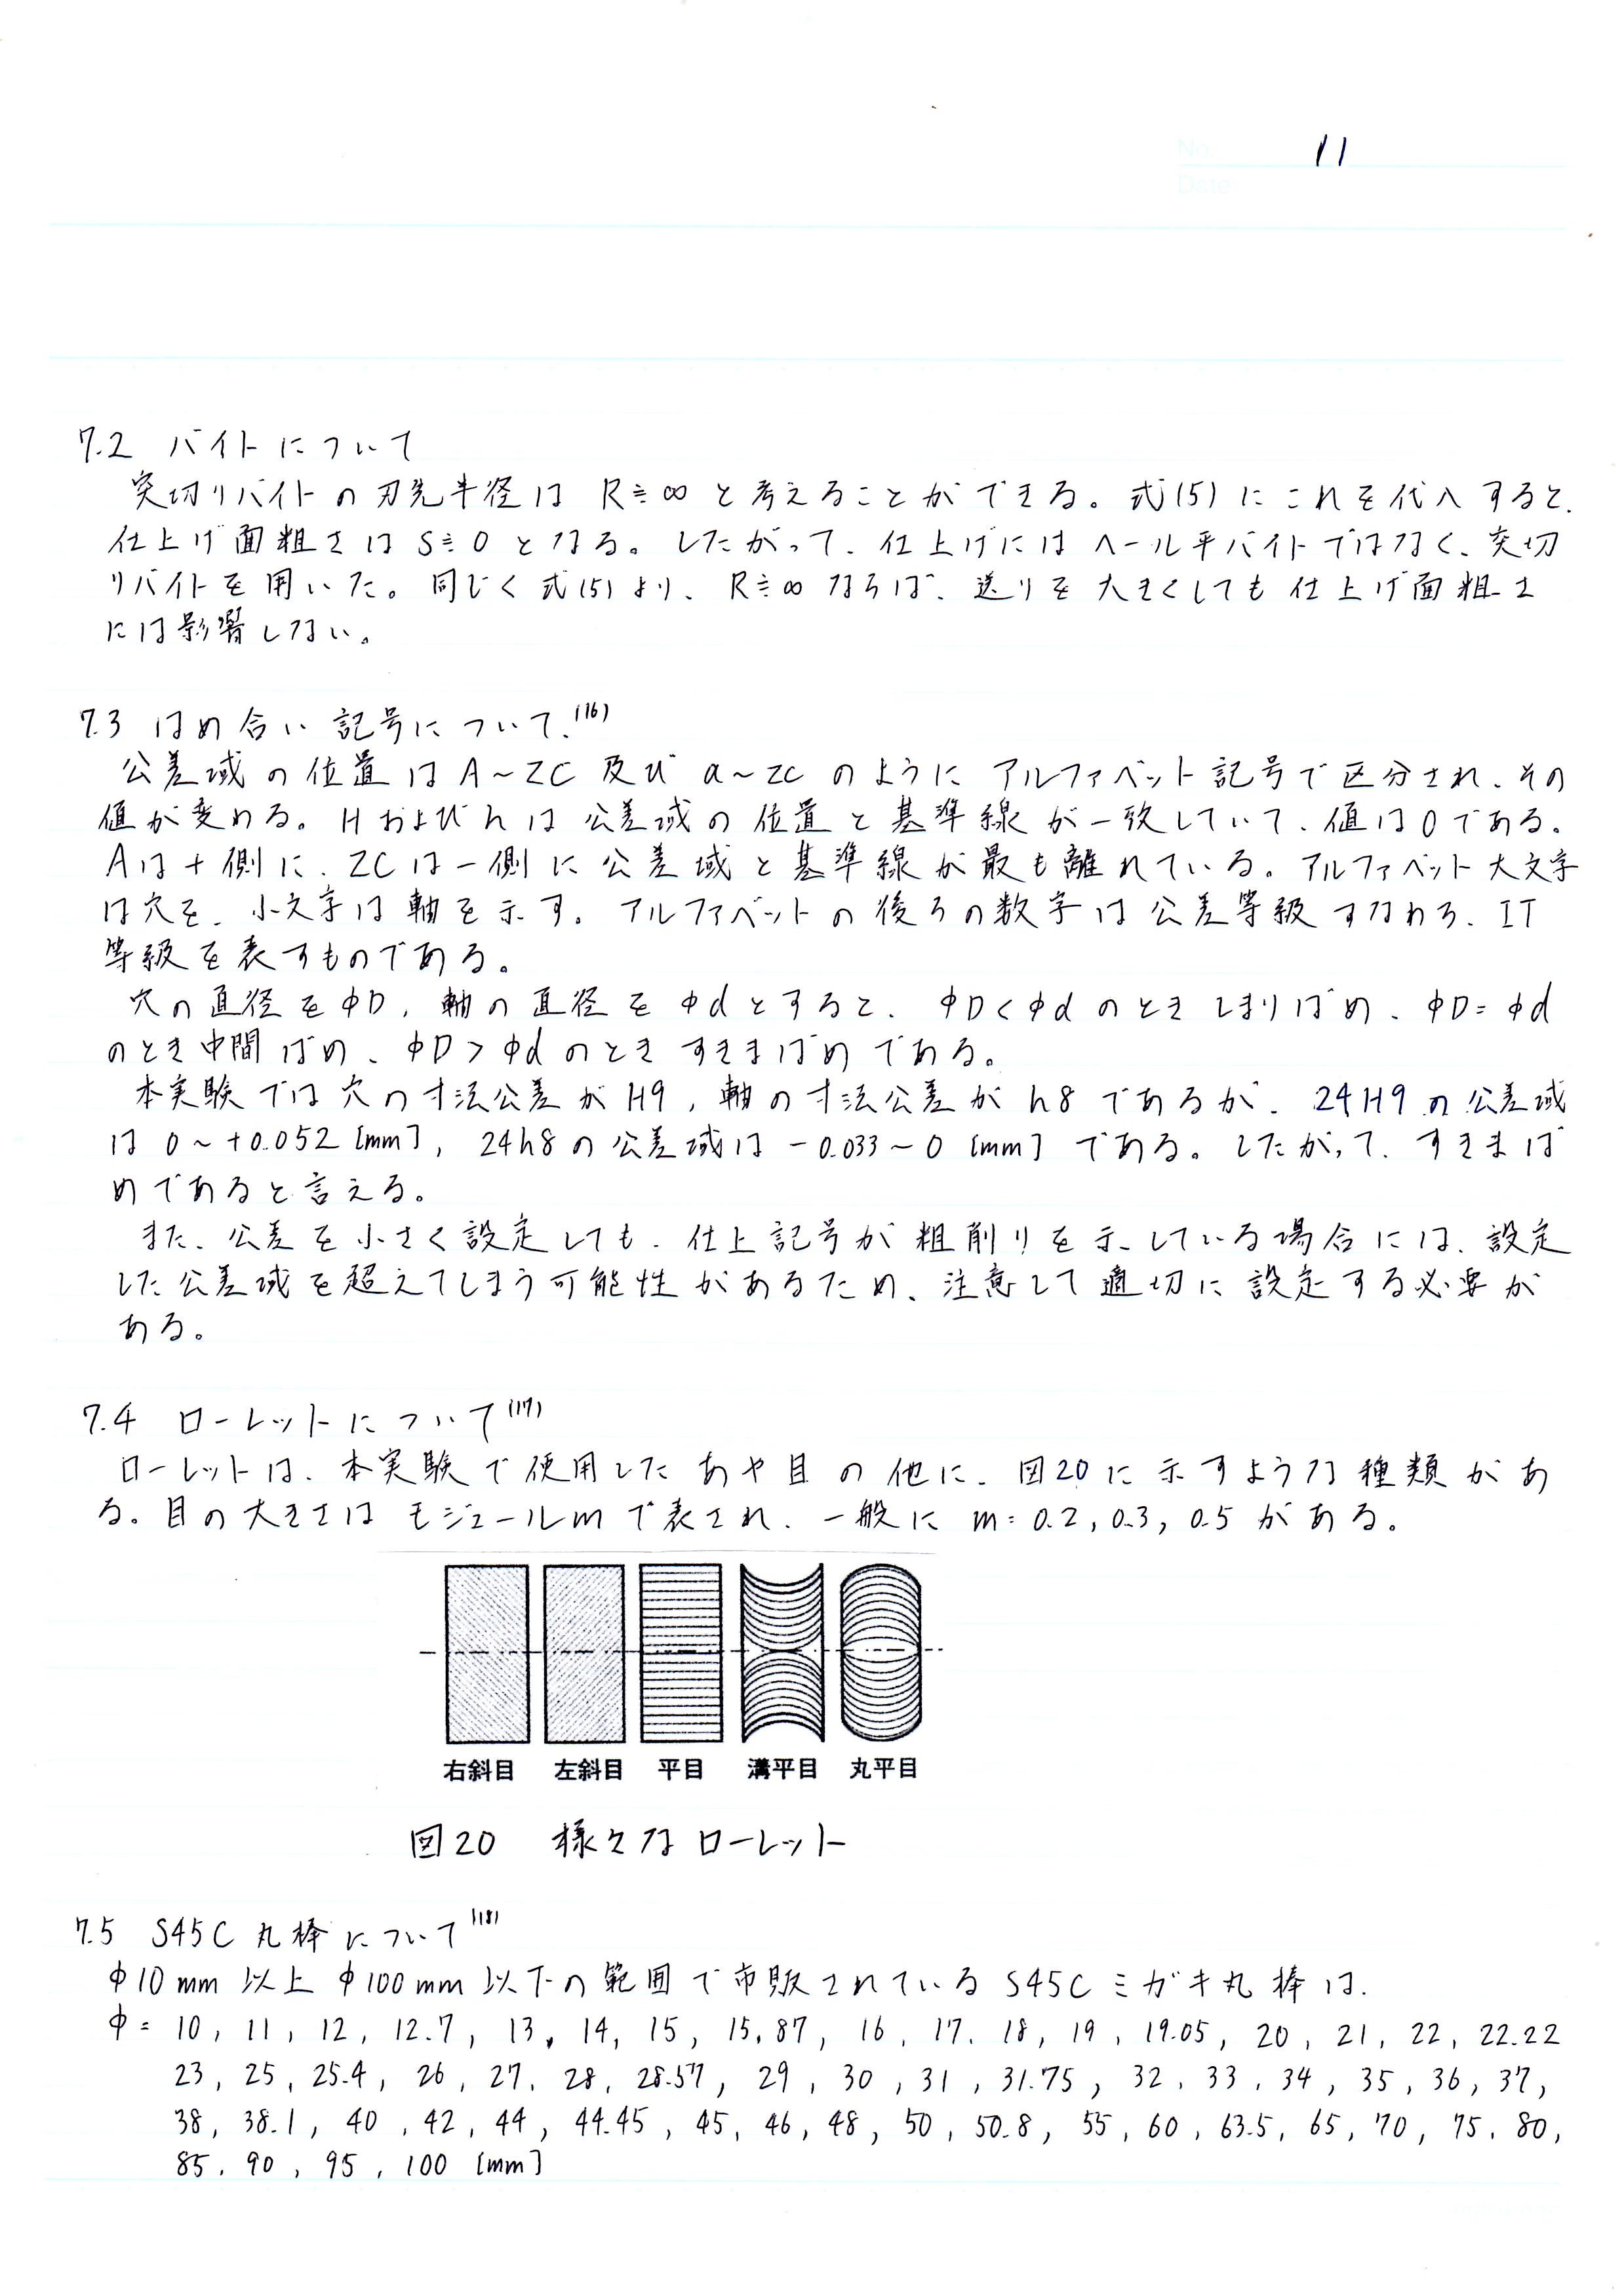 No. 11
Date
7.2 バイトについて
突切りバイトの刃先半径は R≒∞ と考えることができる。式(5)にこれを代入すると、
仕上げ面粗さは S≒0 となる。したがって、仕上げにはヘール平バイトではなく、突切
りバイトを用いた。同じく式(5)より、R≒∞ ならば、送りを大きくしても仕上げ面粗さ
には影響しない。
7.3 はめ合い記号について(16)
公差域の位置は A~ZC 及び a~zc のようにアルファベット記号で区分され、その
値が変わる。Hおよびhは公差域の位置と基準線が一致していて、値は0である。
Aは+側に、ZCは-側に公差域と基準線が最も離れている。アルファベット大文字
は穴を、小文字は軸を示す。アルファベットの後ろの数字は公差等級すなわち、IT
等級を表すものである。
穴の直径をΦD, 軸の直径をΦdとすると、ΦD<Φdのときしまりばめ、ΦD=Φd
のとき中間ばめ、ΦD>Φdのときすきまばめである。
本実験では穴の寸法公差がH9, 軸の寸法公差がh8であるが、24H9の公差域
は 0~+0.052 [mm], 24h8の公差域は -0.033~0 [mm] である。したがって、すきまば
めであると言える。
また、公差を小さく設定しても、仕上記号が粗削りを示している場合には、設定
した公差域を超えてしまう可能性があるため、注意して適切に設定する必要が
ある。
7.4 ローレットについて(17)
ローレットは、本実験で使用したあや目の他に、図20に示すような種類があ
る。目の大きさはモジュールmで表され、一般に m=0.2, 0.3, 0.5 がある。
右斜目 左斜目 平目 溝平目 丸平目
図20 様々なローレット
7.5 S45C 丸棒について(18)
Φ10mm 以上 Φ100mm 以下の範囲で市販されているS45Cミガキ丸棒は、
Φ= 10, 11, 12, 12.7, 13, 14, 15, 15.87, 16, 17, 18, 19, 19.05, 20, 21, 22, 22.22
23, 25, 25.4, 26, 27, 28, 28.57, 29, 30, 31, 31.75, 32, 33, 34, 35, 36, 37,
38, 38.1, 40, 42, 44, 44.45, 45, 46, 48, 50, 50.8, 55, 60, 63.5, 65, 70, 75, 80,
85, 90, 95, 100 [mm]